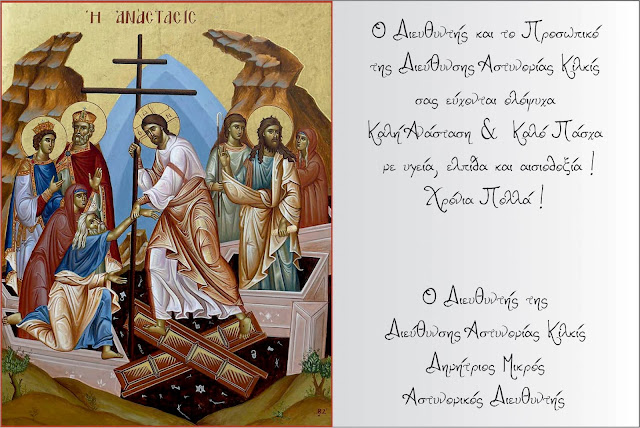 Η ΑΝΑΣΤΑΣΙΣ
Ο Διευθυντής και το Προσωπικό
της Διεύθυνσης Αστυνομίας Κιλκίς
σας εύχονται ολόψυχα
Καλή Ανάσταση & Καλό Πάσχα
με υγεία, ελπίδα και αισιοδοξία !
Χρόνια Πολλά !
Ο Διευθυντής της
Διεύθυνσης Αστυνομίας Κιλκίς
Δημήτριος Μικρός
Αστυνομικός Διευθυντής